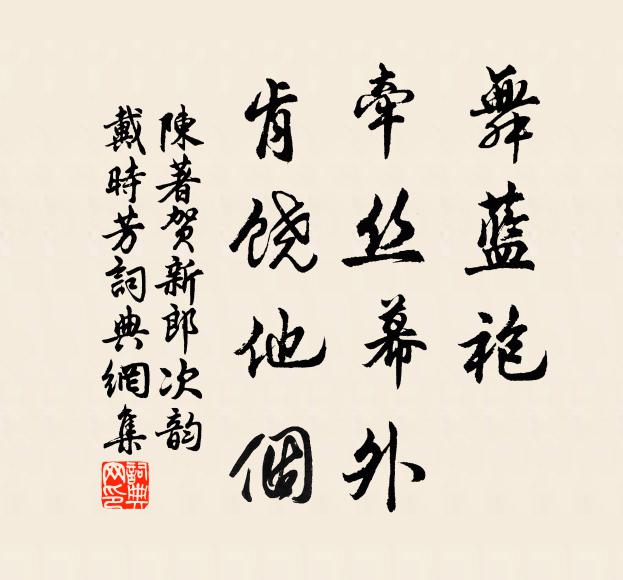 舞藍袍
牽丝幕外
肯饶他個
陳著賀新郎次韵
戴時芳詞典網集
詞典网印